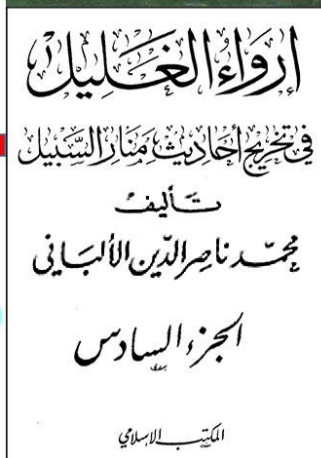 إرواء الغليل
في تخريج أحاديث منار السبيل
تأليف
محمد ناصر الدين الألباني
الجزء السادس
المكتب الإسلامي